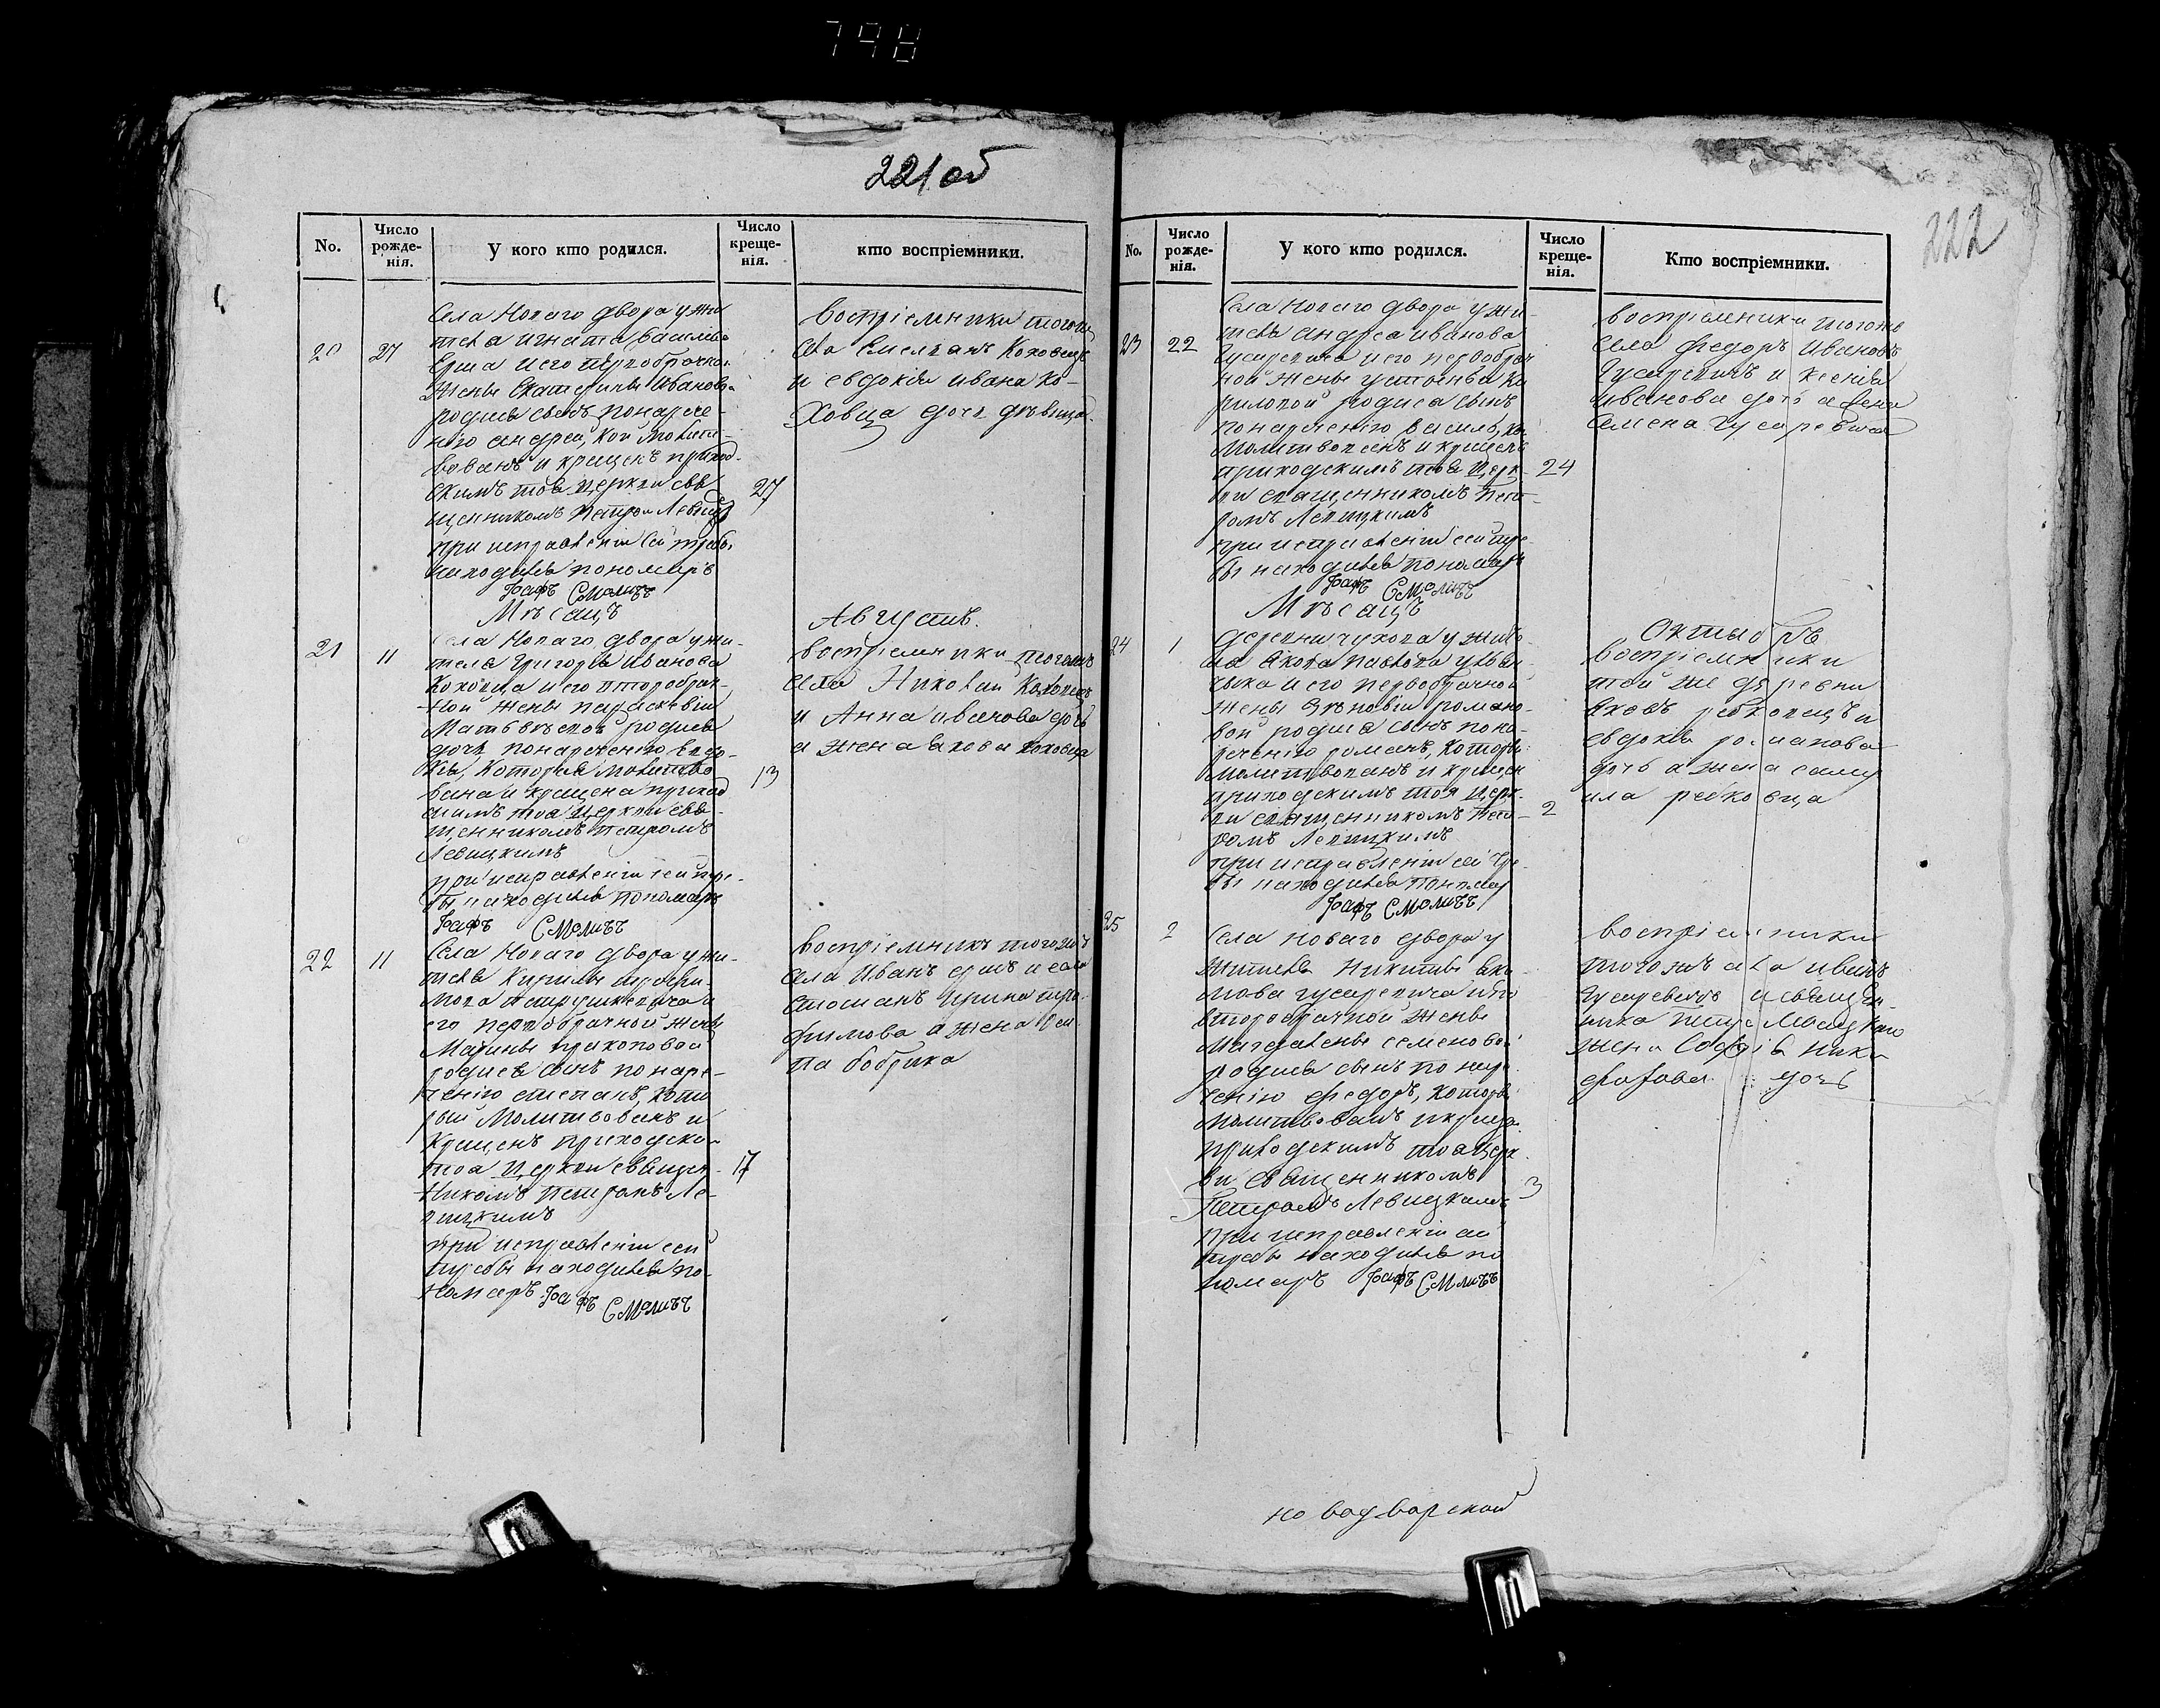 798
221 об
No.
Число рожде-нія.
У кого кто родился.
Число креще-нія.
кто воспріемники.
20
27
Села Новаго двора у жи
теля Игната Василіева
Ерша и его
жены Екатерины Ивановы
родися сынъ понарече-
нію андрей, кой молитв
вованъ и крещенъ приход-
скимъ тоя церкви свя
щенникомъ Петром Левицк
при исправленіи сей требы
находился пономаръ
Іоафъ Смоличъ
27
Воспріемники тогожъ
села Емельянъ Коховецъ
и евдокія ивана Ко-
ховца дочь дѣвица
Мѣсяцъ
Августъ.
21
11
Села Новаго двора у жи-
теля Григорія Иванова
Коховца и его второбрач-
ной жены параскевіи
Матьвѣевой родися
дочь понареченію Евдо-
кія, которая молитво
вана и крещена приход
скимъ тоя церкви свя-
щенникомъ петромъ
Левицкимъ
при исправленіи сей тре-
бы находился пономаръ
Іоафъ Смоличъ
13
воспріемники тогожъ
села Николай Коховецъ
и Анна иванова дочь
а жена якова коховца
22
11
Села Новаго двора у жи-
теля Кирилы трофи-
мова петрушкевича и
его первобрачной жены
Марины прокоповой
родися сынъ по наре-
ченію степанъ, кото
рый молитвованъ и
крещенъ приходским
тоя церкви священ-
никомъ петромъ Ле-
вицкимъ
при исправленіи сей
требы находился по-
номаръ Іоафъ Смоличъ
17
воспріемники тогожъ
села Иванъ
Ирина тро-
фимова а жена
па бобрика
222
No.
Число рожде-нія.
У кого кто родился.
Число креще-нія.
Кто воспріемники.
23
22
Села Новаго двора у жи-
теля андрея иванова
Гусаревича и его первобрач
ной жены устиньи Ки
риловой родися сынъ
понареченію василь, ко
молитвованъ и крещенъ
приходскимъ тоя церк-
ви священникомъ Пет-
ромъ Левицкимъ
при исправленіи сей тре-
бы находился пономаръ
Іоафъ Смоличъ
24
воспріемники тогожъ
села федоръ Ивановъ
Гусаревичъ и ксенія
иванова дочь а жена
семена гусаревича
Мѣсяцъ
Октябрь
24
1
деревни чухова у жите
ля якова павлова
и его первобрачной
жены Зѣновіи романо-
вой родися сынъ пона-
реченію романъ, которы
молитвованъ и крещен
приходскимъ тоя церк-
ви священникомъ Пет-
ромъ Левицкимъ
при исправленіи сей тре-
бы находился пономар
Іоафъ Смоличъ
2
воспріемники
той же деревни
яковъ ребковецъ и
евдокія романова
дочь а жена саму
ила ребковца
25
2
Села новаго двора у
жителя Никиты яки-
мова гусаревича и его
второбрачной жены
Магдалены семеновой
родися сынъ по наре
ченію федоръ, которы
молитвованъ и креще
приходскимъ тоя церк-
ви священникомъ
Петромъ Левицкимъ
при исправленіи сей
требы находился по
номаръ Іоафъ Смоличъ
3
воспріемники
тогожъ села иванъ
Гусаревичъ и священ-
ника петра Левицкаго
жена Софія ники
форова дочь
новодворской